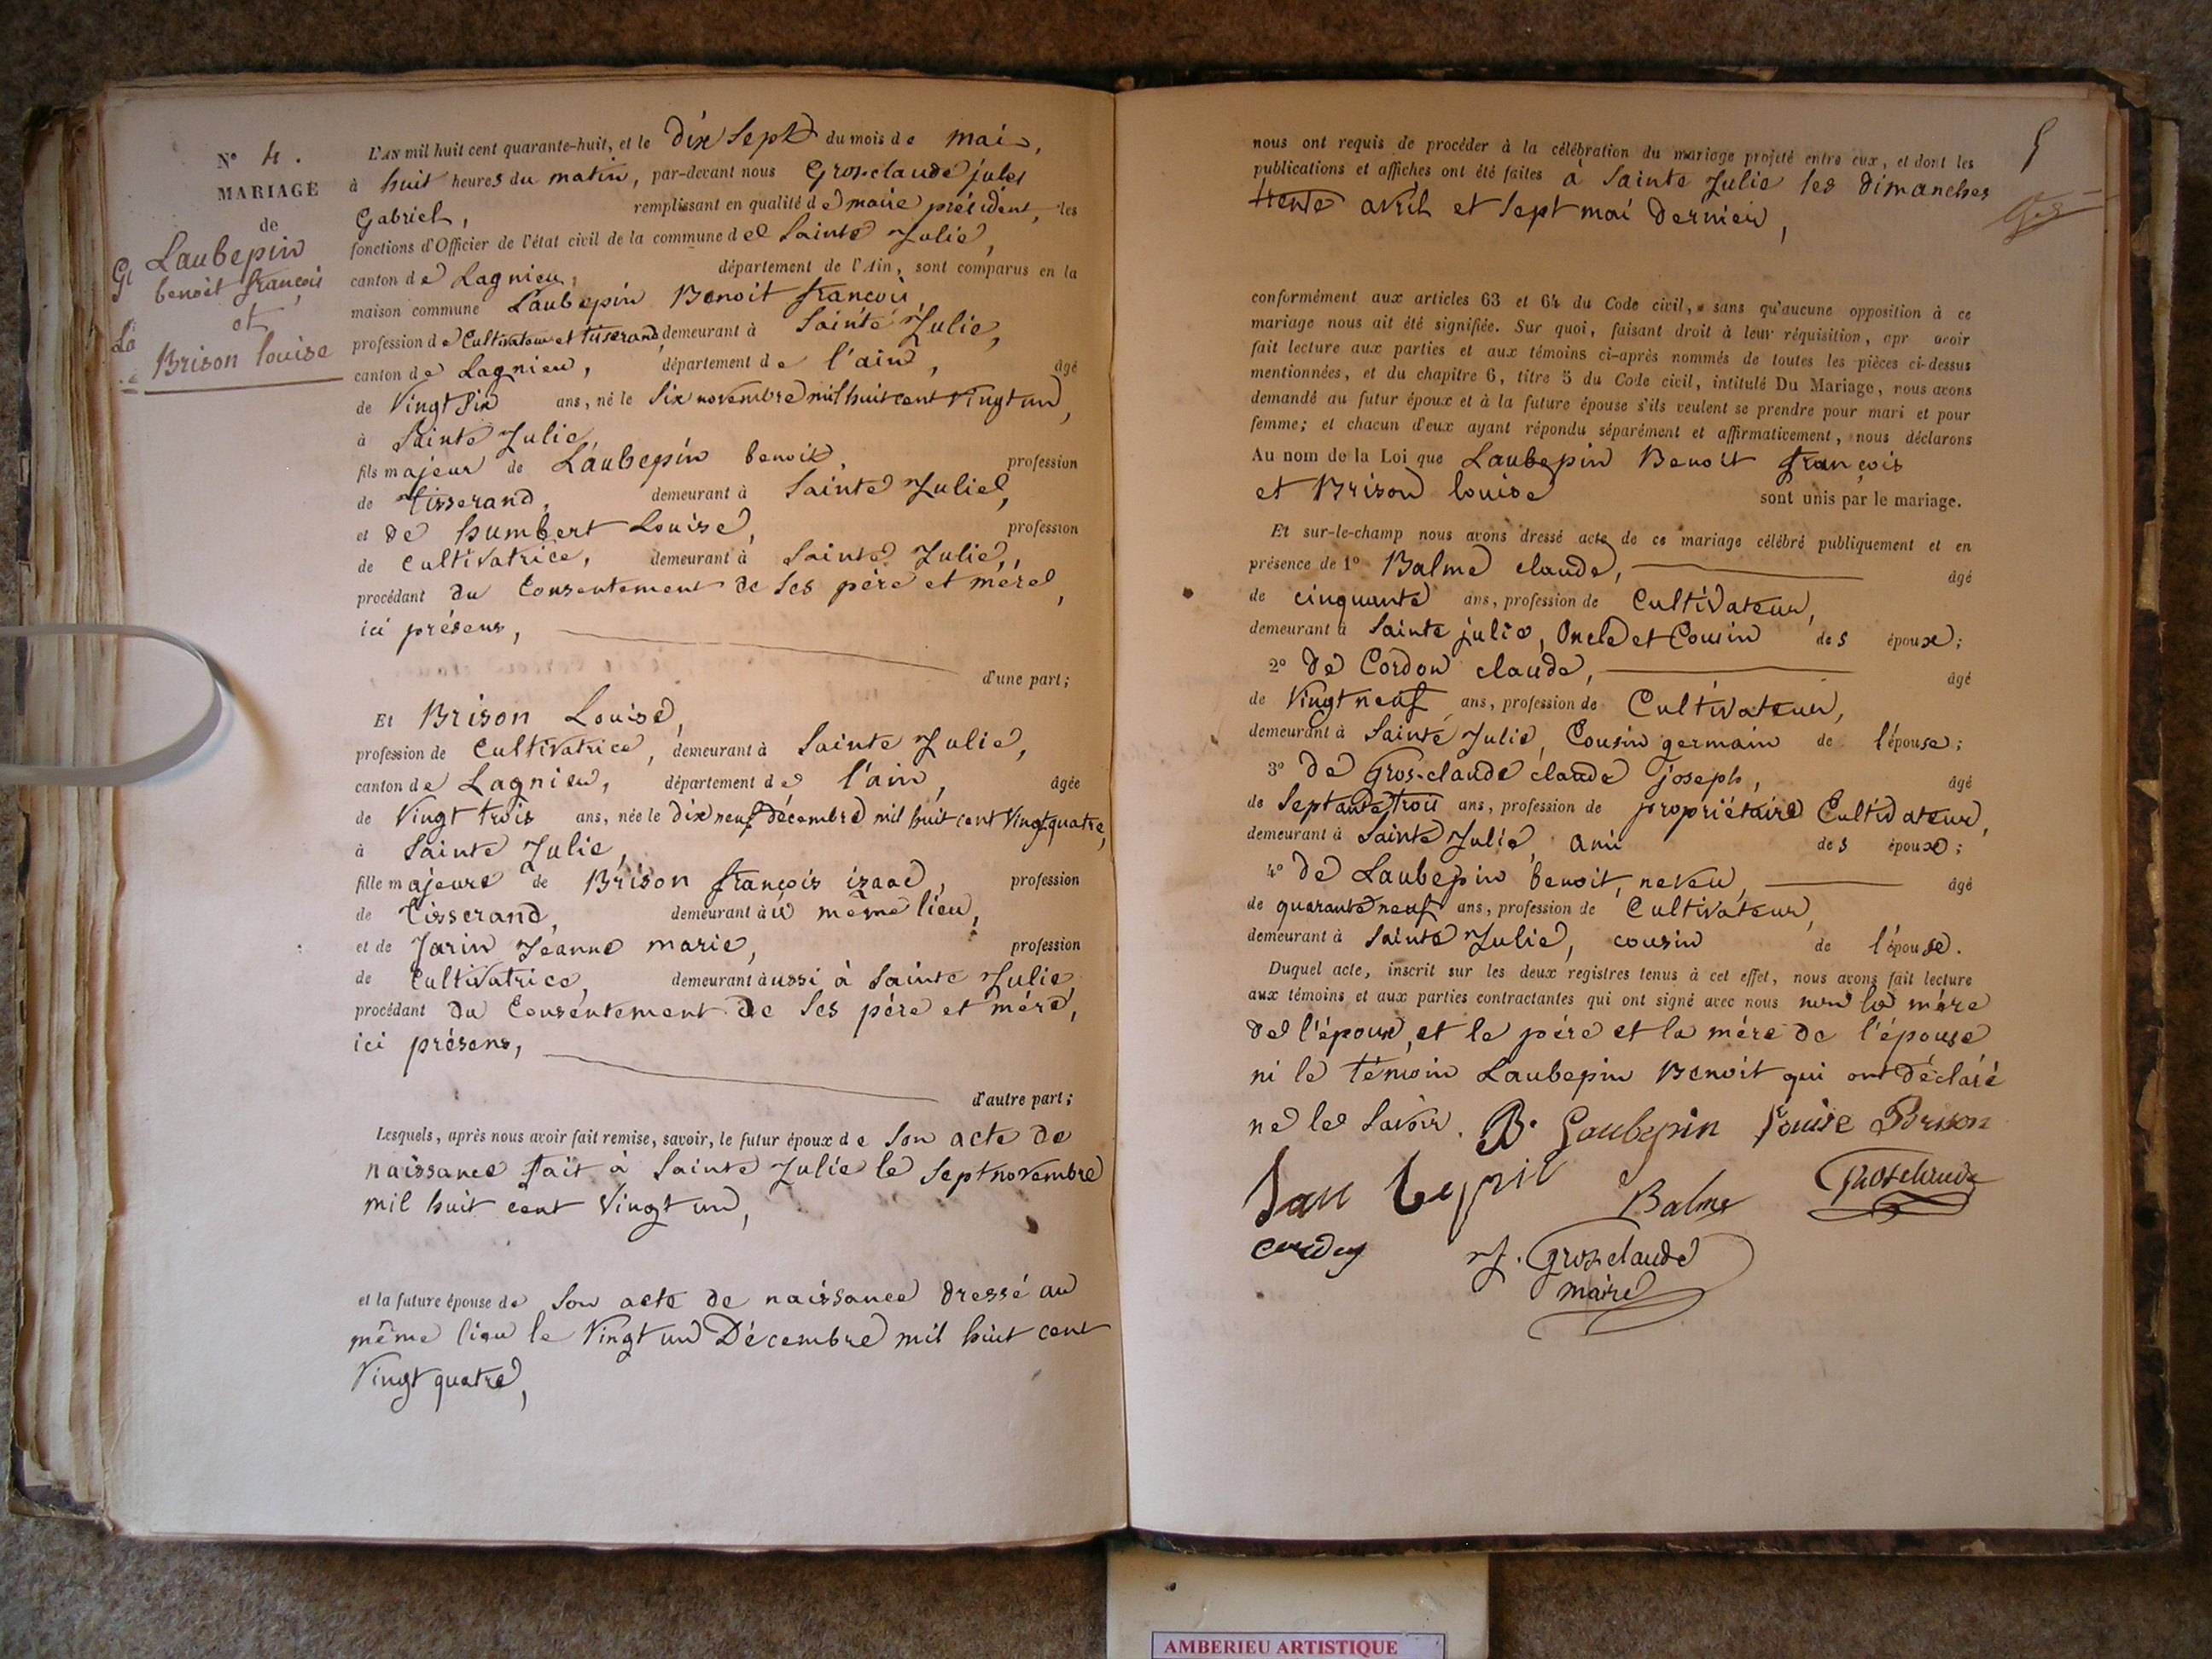 N° 4.
MARIAGE
de
Laubepin
benoit françois
et
Brison louise
L'AN mil huit cent quarante-huit, et le dix sept du mois de mai,
à huit heures du matin, par-devant nous Gros-claude jules
Gabriel, remplissant en qualité de maire président, les
fonctions d'Officier de l'état civil de la commune de Sainte Julie,
canton de Lagnieu, département de l'Ain, sont comparus en la
maison commune Laubepin Benoit françois,
profession de Cultivateur et tisserand, demeurant à Sainte Julie,
canton de Lagnieu, département de l'ain, âgé
de Vingt six ans, né le six novembre mil huit cent Vingt un,
à Sainte Julie,
fils majeur de Laubepin benoit, profession
de tisserand, demeurant à Sainte Julie,
et de humbert Louise, profession
de cultivatrice, demeurant à Sainte Julie,
procédant du Consentement de ses père et mère,
ici présens,
d'une part;
Et Brison Louise,
profession de Cultivatrice, demeurant à Sainte Julie,
canton de Lagnieu, département de l'ain, âgée
de Vingt trois ans, née le dix neuf décembre mil huit cent Vingt quatre,
à Sainte Julie,
fille majeure de Brison françois izaac, profession
de Tisserand, demeurant au même lieu,
et de Jarin Jeanne marie, profession
de Cultivatrice, demeurant aussi à Sainte Julie,
procédant du Consentement de ses père et mère,
ici présens,
d'autre part;
Lesquels, après nous avoir fait remise, savoir, le futur époux de son acte de
naissance fait à Sainte Julie le sept novembre
mil huit cent Vingt un,
et la future épouse de son acte de naissance dressé au
même lieu le Vingt un Décembre mil huit cent
Vingt quatre,
5
nous ont requis de procéder à la célébration du mariage projeté entre eux, et dont les
publications et affiches ont été faites à Sainte Julie les dimanches
trente avril et sept mai dernier,
conformément aux articles 63 et 64 du Code civil, sans qu'aucune opposition à ce
mariage nous ait été signifiée. Sur quoi, faisant droit à leur réquisition, apr avoir
fait lecture aux parties et aux témoins ci-après nommés de toutes les pièces ci-dessus
mentionnées, et du chapitre 6, titre 5 du Code civil, intitulé Du Mariage, nous avons
demandé au futur époux et à la future épouse s'ils veulent se prendre pour mari et pour
femme; et chacun d'eux ayant répondu séparément et affirmativement, nous déclarons
Au nom de la Loi que Laubepin Benoit françois
et Brison louise sont unis par le mariage.
Et sur-le-champ nous avons dressé acte de ce mariage célébré publiquement et en
présence de 1° Balme claude, âgé
de cinquante ans, profession de Cultivateur,
demeurant à Sainte julie, Oncle et Cousin des époux;
2° de Cordon claude, âgé
de Vingt neuf ans, profession de Cultivateur,
demeurant à Sainte Julie, Cousin germain de l'épouse;
3° de Gros-claude claude joseph, âgé
de Septante trois ans, profession de propriétaire Cultivateur,
demeurant à Sainte Julie, ami des époux;
4° de Laubepin benoit, neveu, âgé
de quarante neuf ans, profession de Cultivateur,
demeurant à Sainte Julie, cousin de l'épouse.
Duquel acte, inscrit sur les deux registres tenus à cet effet, nous avons fait lecture
aux témoins et aux parties contractantes qui ont signé avec nous non la mère
de l'époux, et le père et la mère de l'épouse
ni le témoin Laubepin Benoit qui ont déclaré
ne le savoir. B. Laubepin Louise Brison
Lau bepin Balme Grosclaude
cordon J. Grosclaude
maire
AMBERIEU ARTISTIQUE